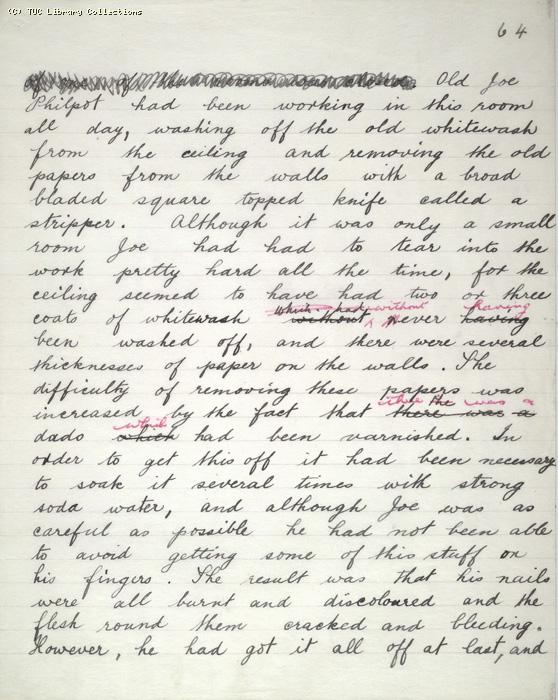 (C) TUC Library Collections
64
Old Joe
Philpot had been working in this room
all day, washing off the old whitewash
from the ceiling and removing the old
papers from the walls with a broad
bladed square topped knife called a
stripper. Although it was only a small
room Joe had had to tear into the
work pretty hard all the time, for the
ceiling seemed to have had two or three
which had without having
coats of whitewash without never having
been washed off, and there were several
thicknesses of paper on the walls. The
difficulty of removing these papers was
there was a
increased by the fact that there was a
which
dado which had been varnished. In
order to get this off it had been necessary
to soak it several times with strong
soda water, and although Joe was as
careful as possible he had not been able
to avoid getting some of this stuff on
his fingers. The result was that his nails
were all burnt and discoloured and the
flesh round them cracked and bleeding.
However, he had got it all off at last, and